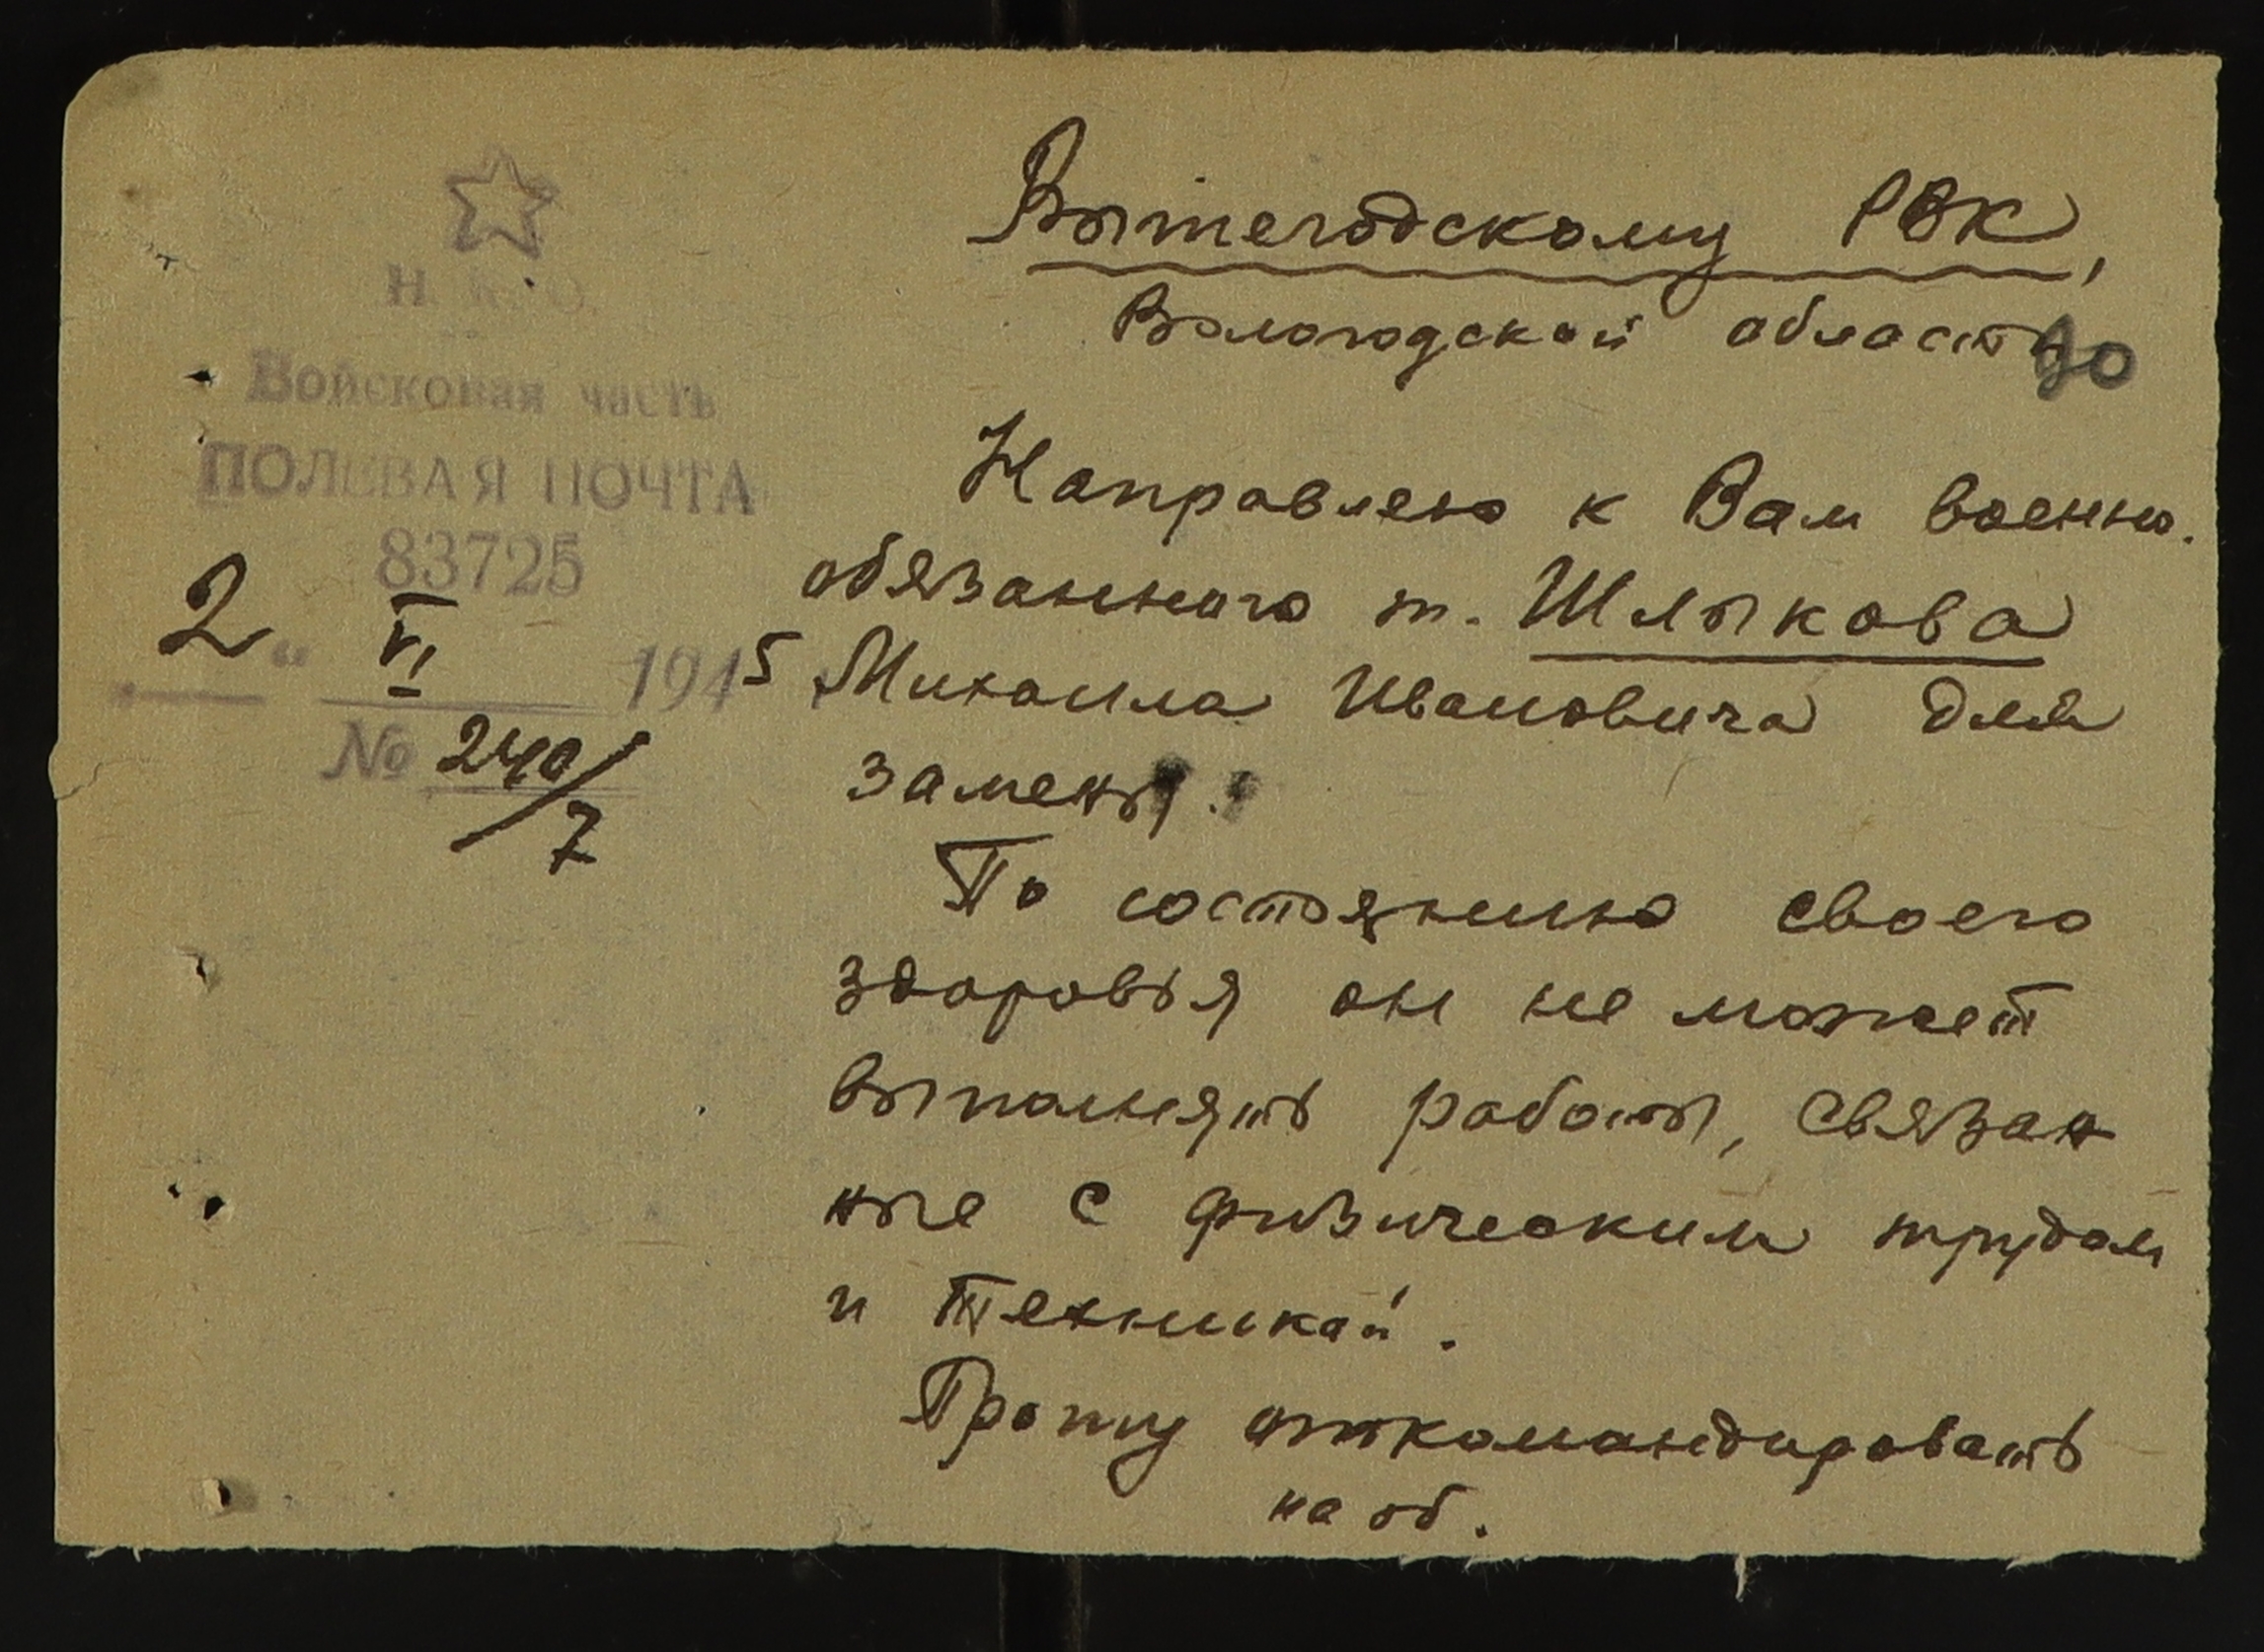 Н. К. О.
Войсковая часть
ПОЛЕВАЯ ПОЧТА
83725
2 " VI 1945
№ 240/7
Вытегодскому РВК,
Вологодской област
90
Направляю к Вам военно.
обязанного т. Шлыкова
Михаила Ивановича для
замены.
По состоянию своего
здоровья он не может
выполнять работы, связан
ные с физическим трудом
и техникой.
Прошу откомандировать
на об.